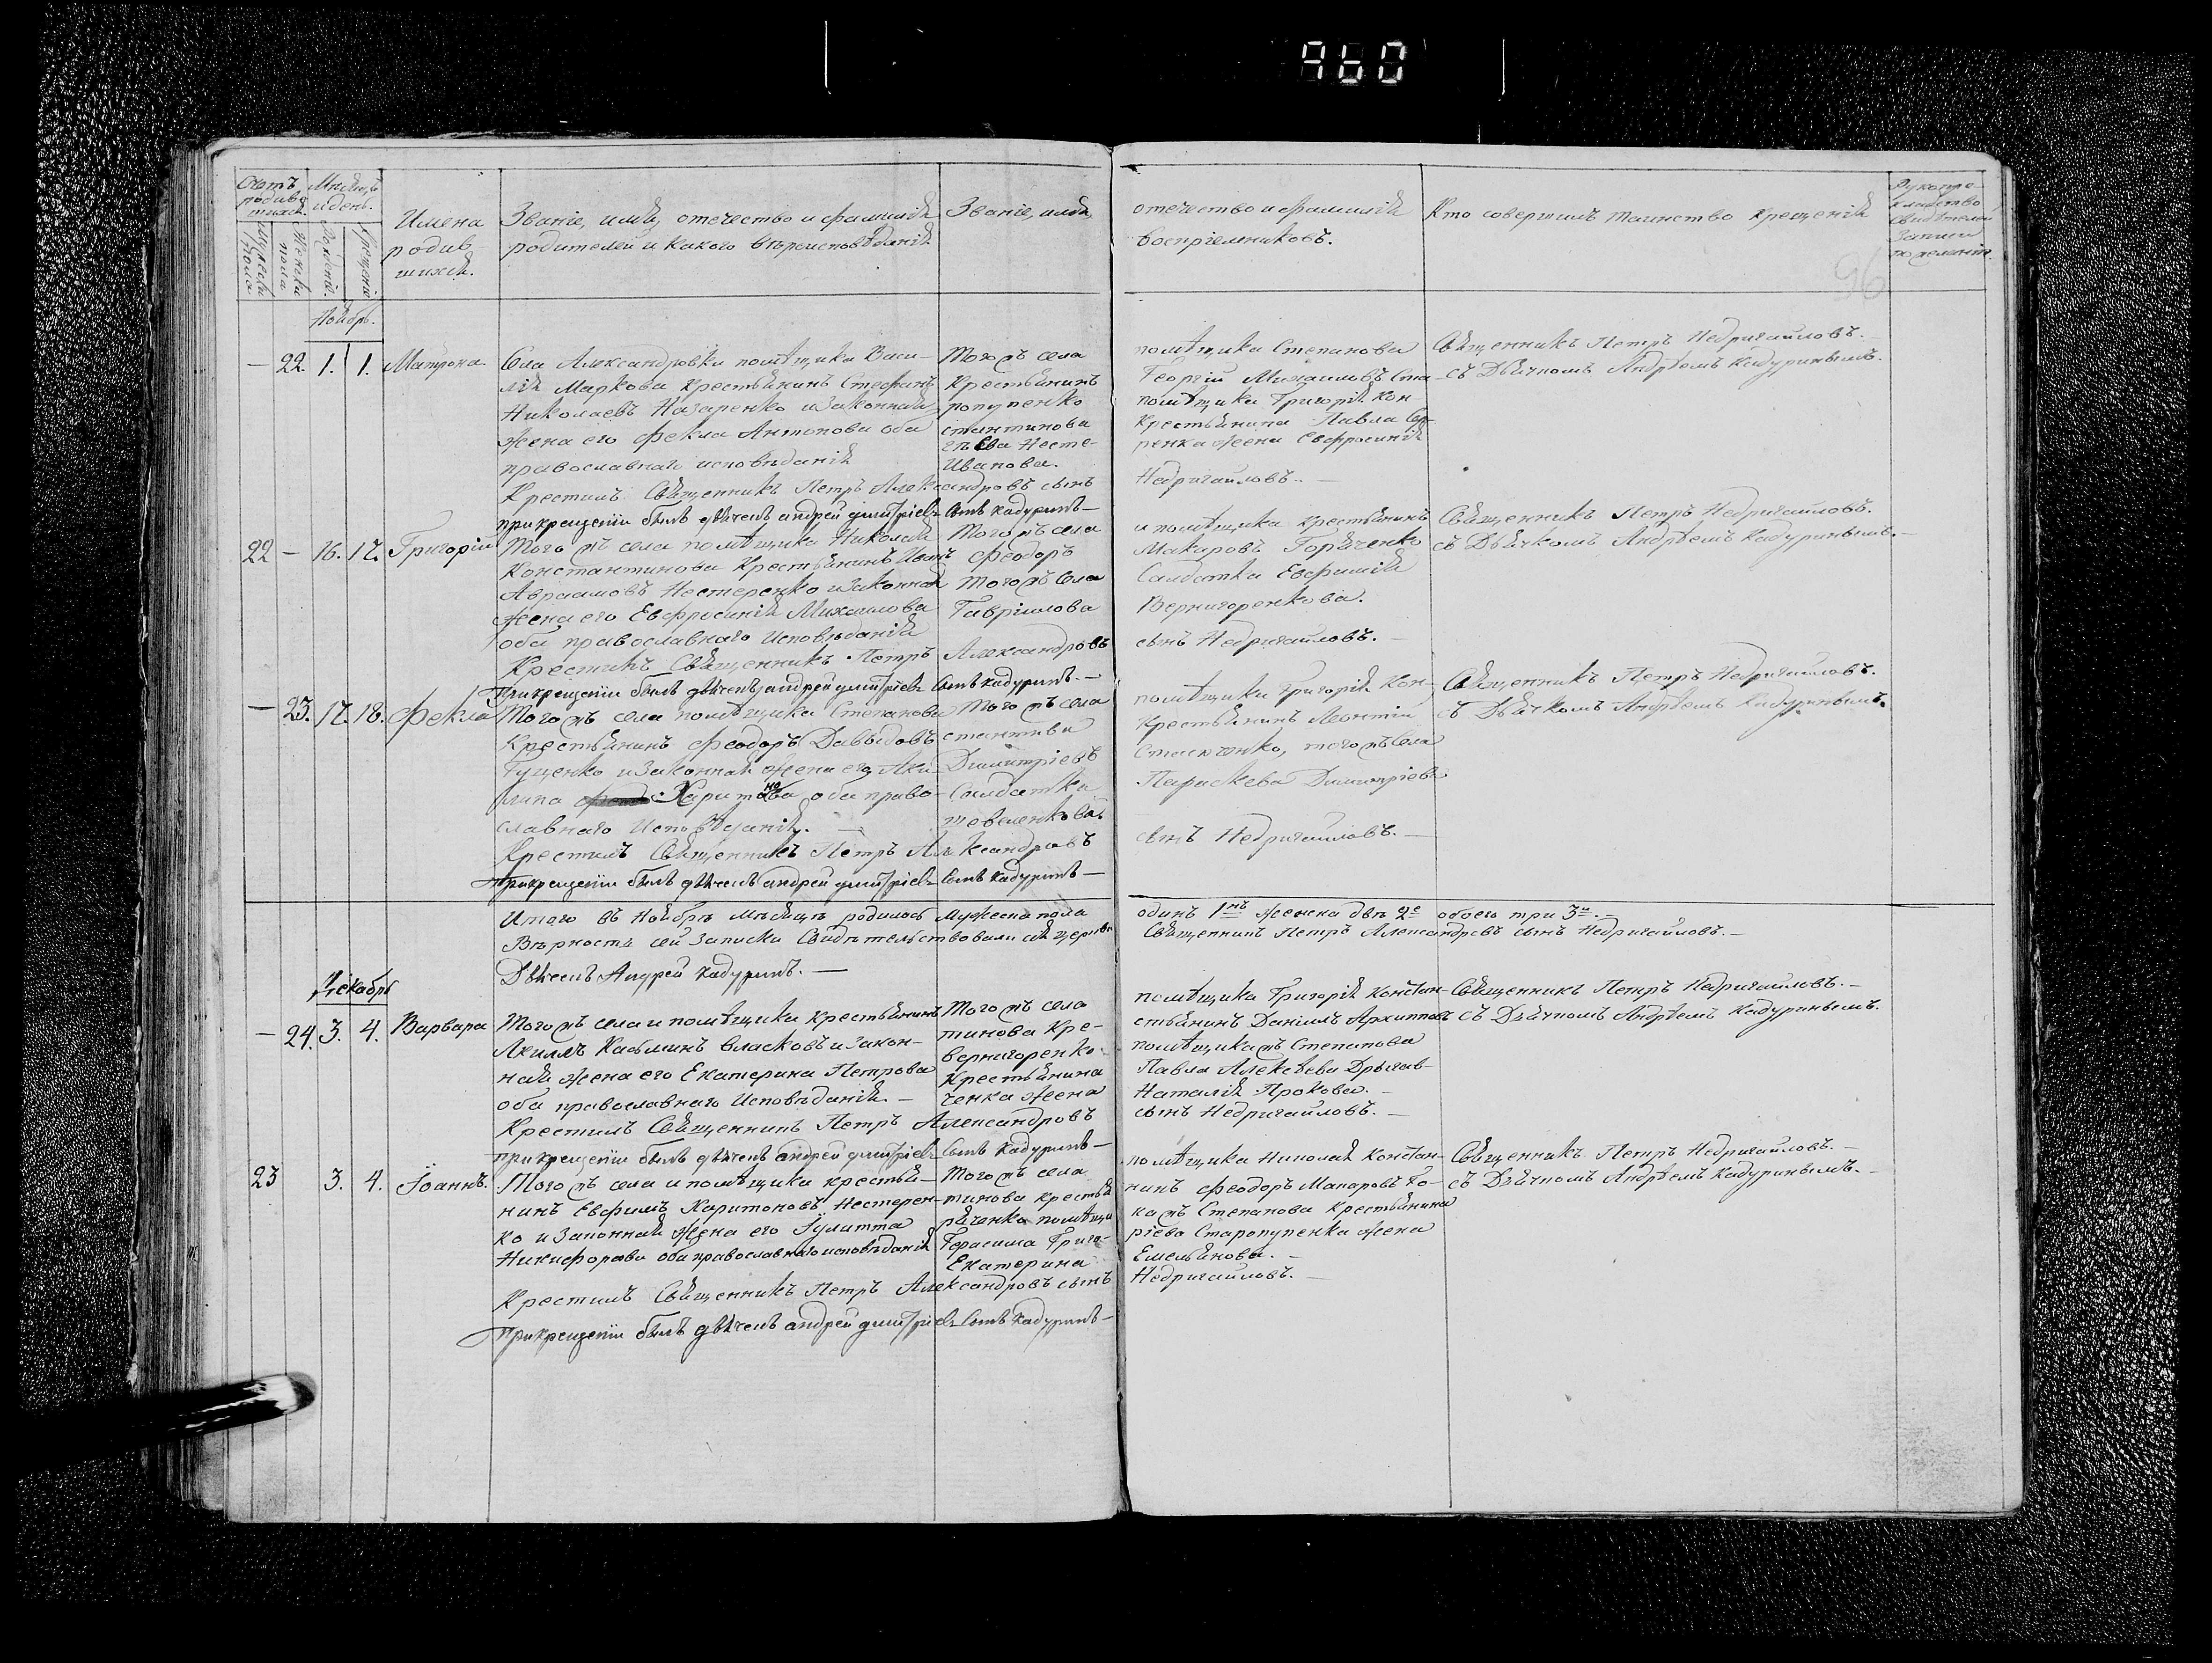 960
Счетъ родившихся.
Мѣсяцъ и день.
Мужеска пола
Женска пола
Рожденія.
Крещенія
Имена родившихся.
Званіе, имя, отечество и фамилія
родителей и какого вѣроисповѣданія
Званіе, имя,
отечество и фамилія
воспріемниковъ.
Кто совершилъ таинство крещенія
Рукопри-
кладство
свидѣтелей
записи
по желанію.
96
Ноябрь.
— 22. 1. 1. Матрона.
Села Александровки помѣщика Васи-
лія Маркова крестьянинъ Стефанъ
Николаевъ Назаренко и законная
жена его Фекла Антонова оба
православнаго исповѣданія
Того жъ села
Крестьянинъ
ропупенко
стантинова
Ева Несте-
Иванова.
помѣщика Степанова
Георгій Михаиловъ Ста-
помѣщика Григорія Кон-
Крестьянина Павла
ренка жена Евфросинія
Священникъ Петръ Недригайловъ.
съ Дьячкомъ Андреемъ Кадуринымъ.
Крестилъ Священникъ Петръ Александровъ сынъ Недригайловъ. —
при крещеніи былъ дьячекъ андрей димитріевъ сынъ кадуринъ —
22 — 16. 17. Григорій
Того жъ села помѣщика Николая
Константинова крестьянинъ Иванъ
Авраамовъ Нестеренко и законная
жена его Евфросинія Михаилова
оба православнаго исповѣданія
Того жъ села
Феодоръ
того жъ села
Гавріилова
и помѣщика крестьянинъ
Макаровъ Горяченко
Салдатка Евфимія
Вернигоренкова.
Священникъ Петръ Недригайловъ.
съ Дьячкомъ Андреемъ Кадуринымъ. —
Крестилъ Священникъ Петръ Александровъ сынъ Недригайловъ. —
При крещеніи былъ дьячекъ андрей димитріевъ сынъ кадуринъ. —
— 23. 17. 18. Фекла
Того жъ села помѣщика Степанова
Крестьянинъ Феодоръ Давыдовъ
Гущенко и законная жена его Аки-
лина Харитонова оба право-
славнаго исповѣданія. —
Того жъ села
стантина
Димитріевъ
Салдатка
помѣщика Григорія Кон-
Крестьянинъ Леонтій
того жъ села
Параскева Димитріева
Священникъ Петръ Недригайловъ.
съ Дьячкомъ Андреемъ Кадуринымъ.
Крестилъ Священникъ Петръ Александровъ сынъ Недригайловъ. —
При крещеніи былъ дьячекъ андрей димитріевъ сынъ кадуринъ —
Итого въ Ноябрѣ мѣсяцѣ родилось мужеска пола одинъ 1нъ женска двѣ 2е обоего три 3и. —
Вѣрность сей записки свидѣтельствовали сея церкви Священникъ Петръ Александровъ сынъ Недригайловъ. —
Дьячекъ Андрей Кадуринъ. —
Декабрь
— 24. 3. 4. Варвара
Того жъ села и помѣщика крестьянинъ
Акимъ Казьминъ Власковъ и закон-
ная жена его Екатерина Петрова
оба православнаго исповѣданія. —
Того жъ села
тинова кре-
вернигоренко
Крестьянина
ченка жена
помѣщика Григорія Констан-
стьянинъ Даніилъ Архиповъ
помѣщика жъ Степанова
Павла Алексѣева Дрыгав-
Наталія Прокова. —
Священникъ Петръ Недригайловъ. —
съ Дьячкомъ Андреемъ Кадуринымъ.
Крестилъ Священникъ Петръ Александровъ сынъ Недригайловъ. —
при крещеніи былъ дьячекъ андрей димитріевъ сынъ кадуринъ —
23 3. 4. Іоаннъ.
Того жъ села и помѣщика крестья-
нинъ Евфимъ Харитоновъ Нестерен-
ко и законная жена его Іулитта
Никифорова оба православнаго исповѣданія
Того жъ села
тинова крестья
ряченко помѣщи
Герасима Григо-
Екатерина
помѣщика Николая Констан-
нинъ Феодоръ Макаровъ Го-
ка жъ Степанова Крестьянина
ріева Старопупенка жена
Емельянова. —
Священникъ Петръ Недригайловъ. —
съ Дьячкомъ Андреемъ Кадуринымъ. —
Крестилъ Священникъ Петръ Александровъ сынъ Недригайловъ. —
При крещеніи былъ дьячекъ андрей димитріевъ сынъ кадуринъ —